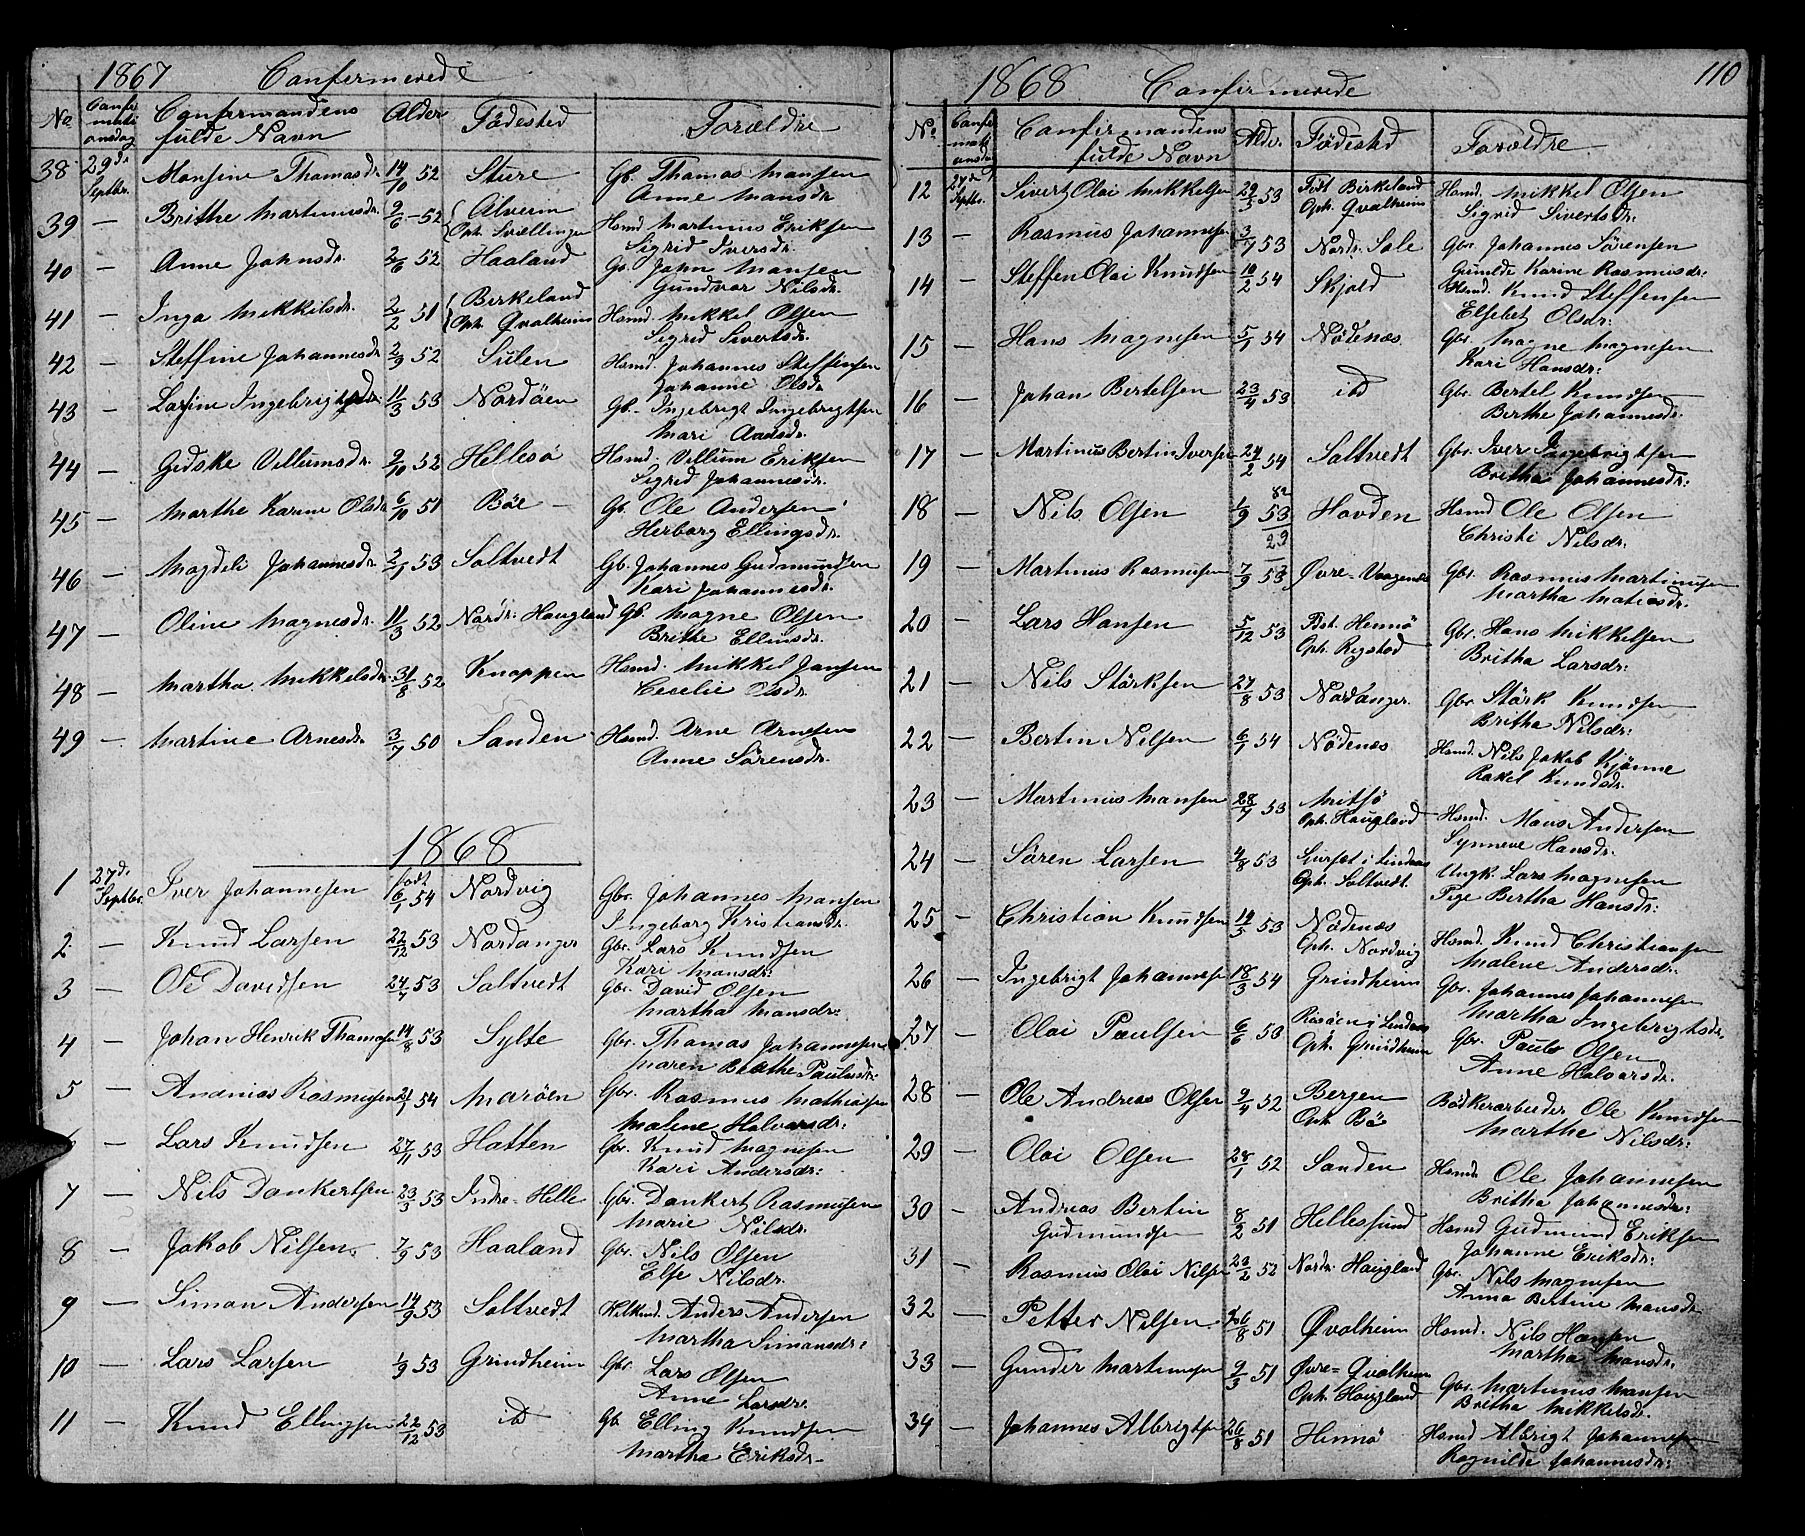 1867 Confirmerede
No Confirmationsdag Confirmandens fulde Navn Alder Fødested Forældre
38 29de Septbr. Monsine Thomasdr. 14/10 52 Sture Gb. Thomas Monsen
Anne Monsdr.
39 — Brithe Martinusdr. 9/6 52 Alverin Hsmd. Martinus Eriksen
Oph. Sællingen Sigrid Iversdr.
40 — Anne Johnsdr. 2/6 52 Haaland Gb. John Monsen
Gundvor Nilsdr.
41 — Inga Mikkelsdr. 2/2 51 Birkeland Hsmd. Mikkel Olsen
Oph. Qvalheim Sigrid Sivertsdr.
42 — Steffine Johannesdr. 2/9 52 Sulen Hsmd. Johannes Steffensen
Johanne Olsdr.
43 — Larsine Ingebrigtsdr. 11/3 53 Nordöen Gb. Ingebrigt Ingebrigtsen
Mari Aadsdr.
44 — Gidske Villumsdr. 9/10 52 Hellesö Hsmd. Villum Eriksen
Sigrid Johannesdr.
45 — Marthe Karine Olsdr. 6/10 51 Böe Gb. Ole Andersen
Herborg Ellingsdr.
46 — Magdeli Johannesdr. 2/1 53 Soltvedt Gb. Johannes Gudmundsen
Kari Johannesdr.
47 — Oline Magnesdr. 11/3 52 Nordr. Haugland Gb. Magne Olsen
Brithe Ellinsdr.
48 — Martha Mikkelsdr. 31/8 52 Knappen Hsmd. Mikkel Jansen
Cecelie Olsdr.
49 — Martine Arnesdr. 3/7 50 Sanden Hsmd. Arne Arnesen
Anne Sörensdr.
1868
1 27de Septbr. Iver Johannesen født 6/1 54 Nordvig Gbr. Johannes Monsen
Ingeborg Kristiansdr.
2 — Knud Larsen 22/12 53 Nordanger Gbr. Lars Knudsen
Kari Monsdr.
3 — Ole Davidsen 24/7 53 Soltvedt Gbr. David Olsen
Martha Monsdr.
4 — Johan Henrik Thomasen 14/8 53 Sylte Gbr. Thomas Johannesen
Maren Brethe Paulusdr.
5 — Andnias Rasmusen 21/1 54 Maröen Gbr. Rasmus Mathiasen
Malene Halvorsdr.
6 — Lars Knudsen 27/11 53 Hatten Gbr. Knud Magnesen
Kari Andersdr.
7 — Nils Dankertsen 23/3 53 Indre-Helle Gbr. Dankert Rasmusen
Marie Nilsdr.
8 — Jakob Nilsen 7/9 53 Haaland Gbr. Nils Olsen
Else Nilsdr.
9 — Simon Andersen 14/9 53 Soltvedt Anders Andersen
Martha Simonsdr.
10 — Lars Larsen 1/9 53 Grindheim Gbr. Lars Olsen
Anne Larsdr.
11 — Knud Ellingsen 22/12 53 id Gb. Elling Knudsen
Martha Eriksdr.
1868 Confirmerede 110
No Confirmationsdag Confirmandens fulde Navn Aldr. Fødested Forældre
12 27de Septbr. Sivert Olai Mikkelsen 29/5 53 Født Birkeland Hsmd. Mikkel Olsen
Oph. Qvalheim Sigrid Sivertsdr.
13 — Rasmus Johannesen 3/7 53 Nordr. Sole Gbr. Johannes Sörensen
Gunilde Karine Rasmusdr.
14 — Steffen Olai Knudsen 10/2 54 Skjold Hsmd. Knud Steffensen
Elsebet Olsdr.
15 — Hans Magnesen 5/1 54 Nödenæs Gbr. Magne Magnesen
Kari Hansdr.
16 — Johan Bertelsen 23/4 53 id Gbr. Bertel Knudsen
Berthe Johannesdr.
17 — Martinus Bertin Iversen 24/2 54 Soltvedt Gbr. Iver Ingebrigtsen
Britha Johannesdr.
18 — Nils Olsen 1/9 53 Hovden Hsmd Ole Olsen
82
29 Christi Nilsdr.
19 — Martinus Rasmusen 7/9 53 Øvre-Vaagenæs Gbr. Rasmus Martinusen
Martha Matiasdr.
20 — Lars Hansen 5/12 53 Født. Hennö Gbr. Hans Mikkelsen
Oph. Rigstad Britha Larsdr.
21 — Nils Störksen 27/8 53 Nordanger Gbr. Störk Knudsen
Britha Nilsdr.
22 — Bertin Nilsen 6/1 54 Nödenæs Hsmd. Nils Jakob Kjönne
Rakel Knudsdr.
23 — Martinus Monsen 28/7 53 Mitsö Hsmd. Mons Andersen
Oph. Haugland Synneve Hansdr.
24 — Sören Larsen 4/8 53 i Lindaas Ungk. Lars Magnesen
Oph. Soltvedt. Pige Bertha Hansdr.
25 — Christian Knudsen 14/5 53 Nödenæs Hsmd. Knud Christiansen
Oph. Nordvig Malene Andersdr.
26 — Ingebrigt Johannesen 18/3 54 Grindheim Gbr. Johannes Johannesen
Martha Ingebrigtsdr.
27 — Olai Paulsen 6/6 53 Rosöen i Lindaas Gbr. Paul Olsen
Oph. Grindheim Anne Halvorsdr.
28 — Ole Andreas Olsen 9/4 52 Bergen Bödkerarbeider Ole Knudsen
Oph. Bö Marthe Nilsdr.
29 — Olai Olsen 28/1 52 Sanden Hsmd. Ole Johannesen
Britha Johannesdr.
30 — Andreas Bertin 8/2 51 Hellesund Hsmd Gudmund Eriksen
Gudmundsen Johanne Eriksdr.
31 — Rasmus Olai Nilsen 23/2 52 Nordr. Haugland Gbr. Nils Magnesen
Anna Bertine Monsdr.
32 — Petter Nilsen 26/8 51 Qvalheim Hsmd. Nils Hansen
Martha Monsdr.
33 — Gunder Martinusen 9/3 51 Øvre-Qvalheim Gbr. Martinus Monsen
Oph. Haugland Britha Mikkelsdr.
34 — Johannes Albrigtsen 26/8 51 Hennö Hsmd Albrigt Johannesen
Ragnilde Johannesdr.